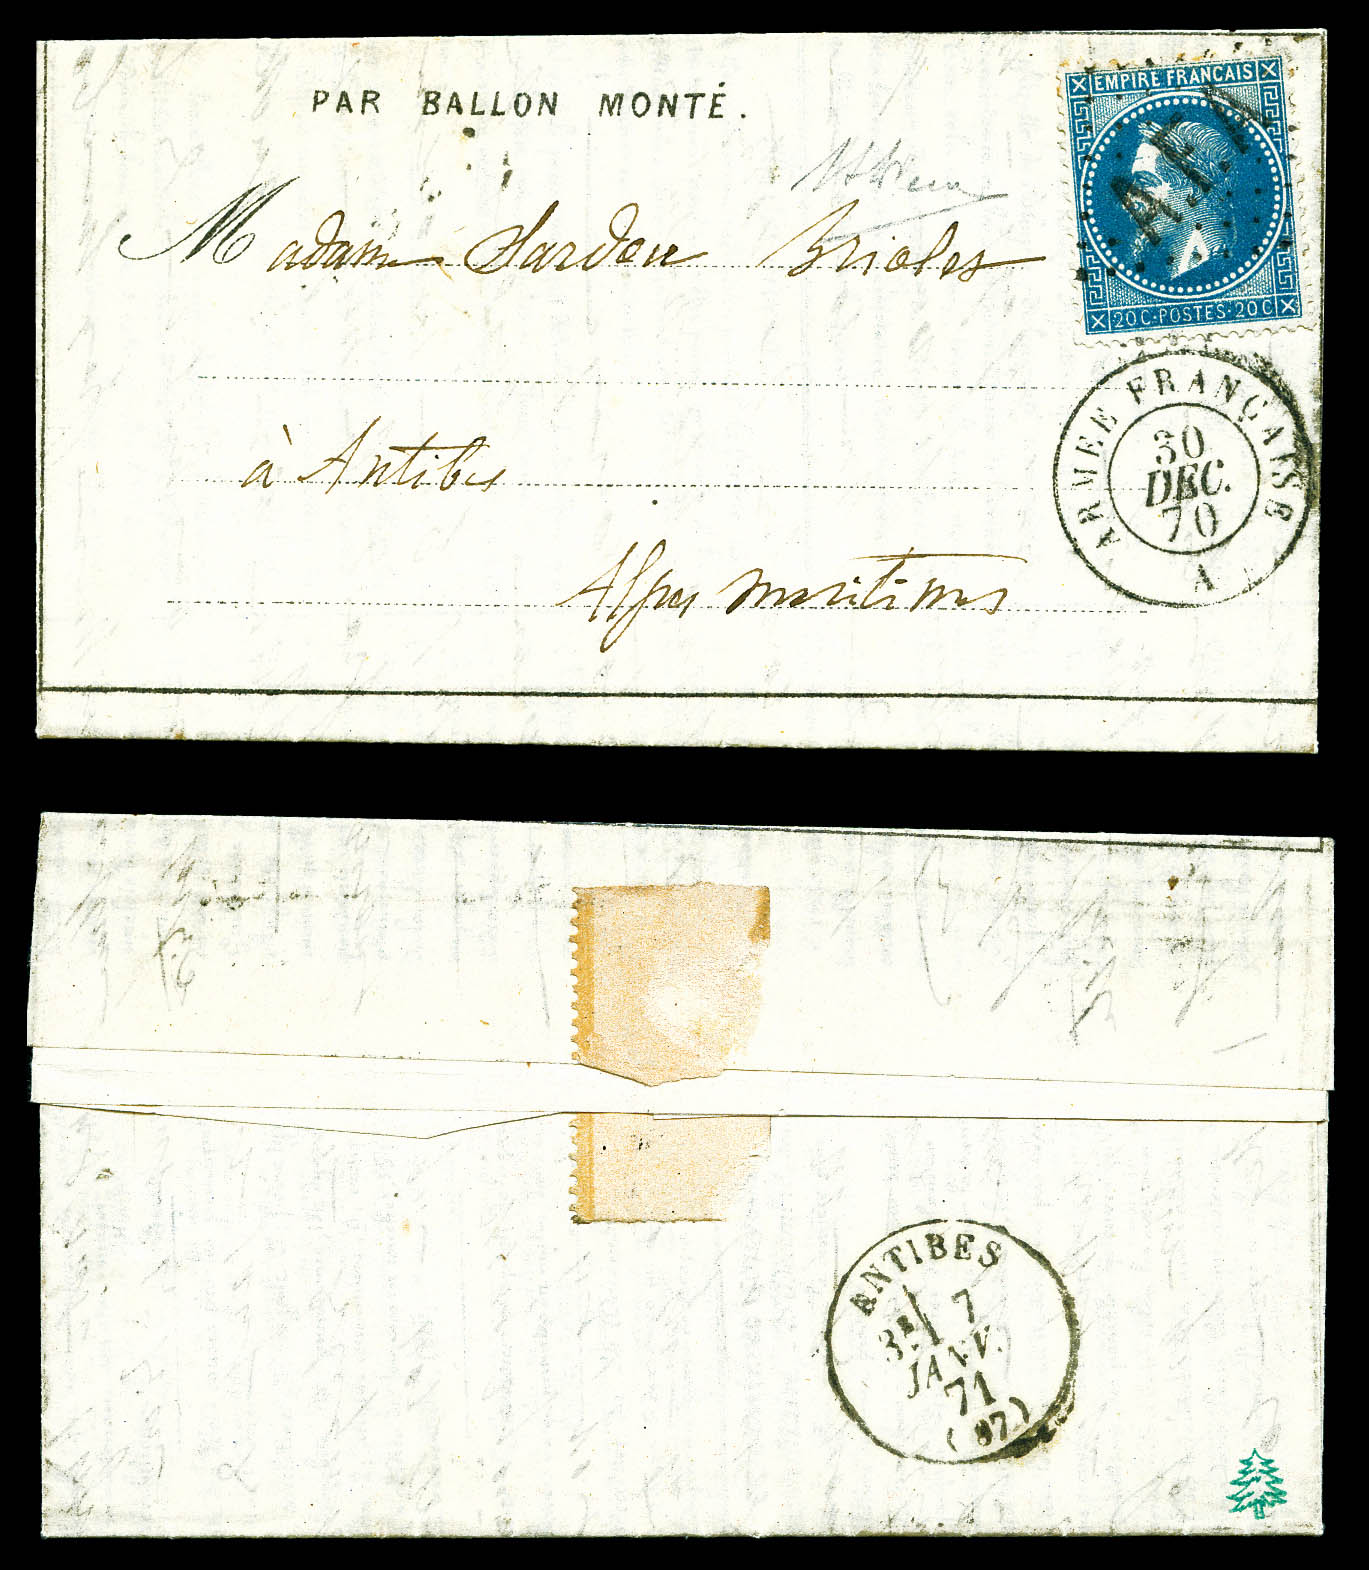 PAR BALLON MONTÉ.
EMPIRE FRANCAIS
20C·POSTES·20C
Madame Sardou Brioles
à Antibes
Alpes maritimes
ARMEE FRANÇAISE
30
DEC.
70
A
ANTIBES
3E 7
JANV.
71
(87)